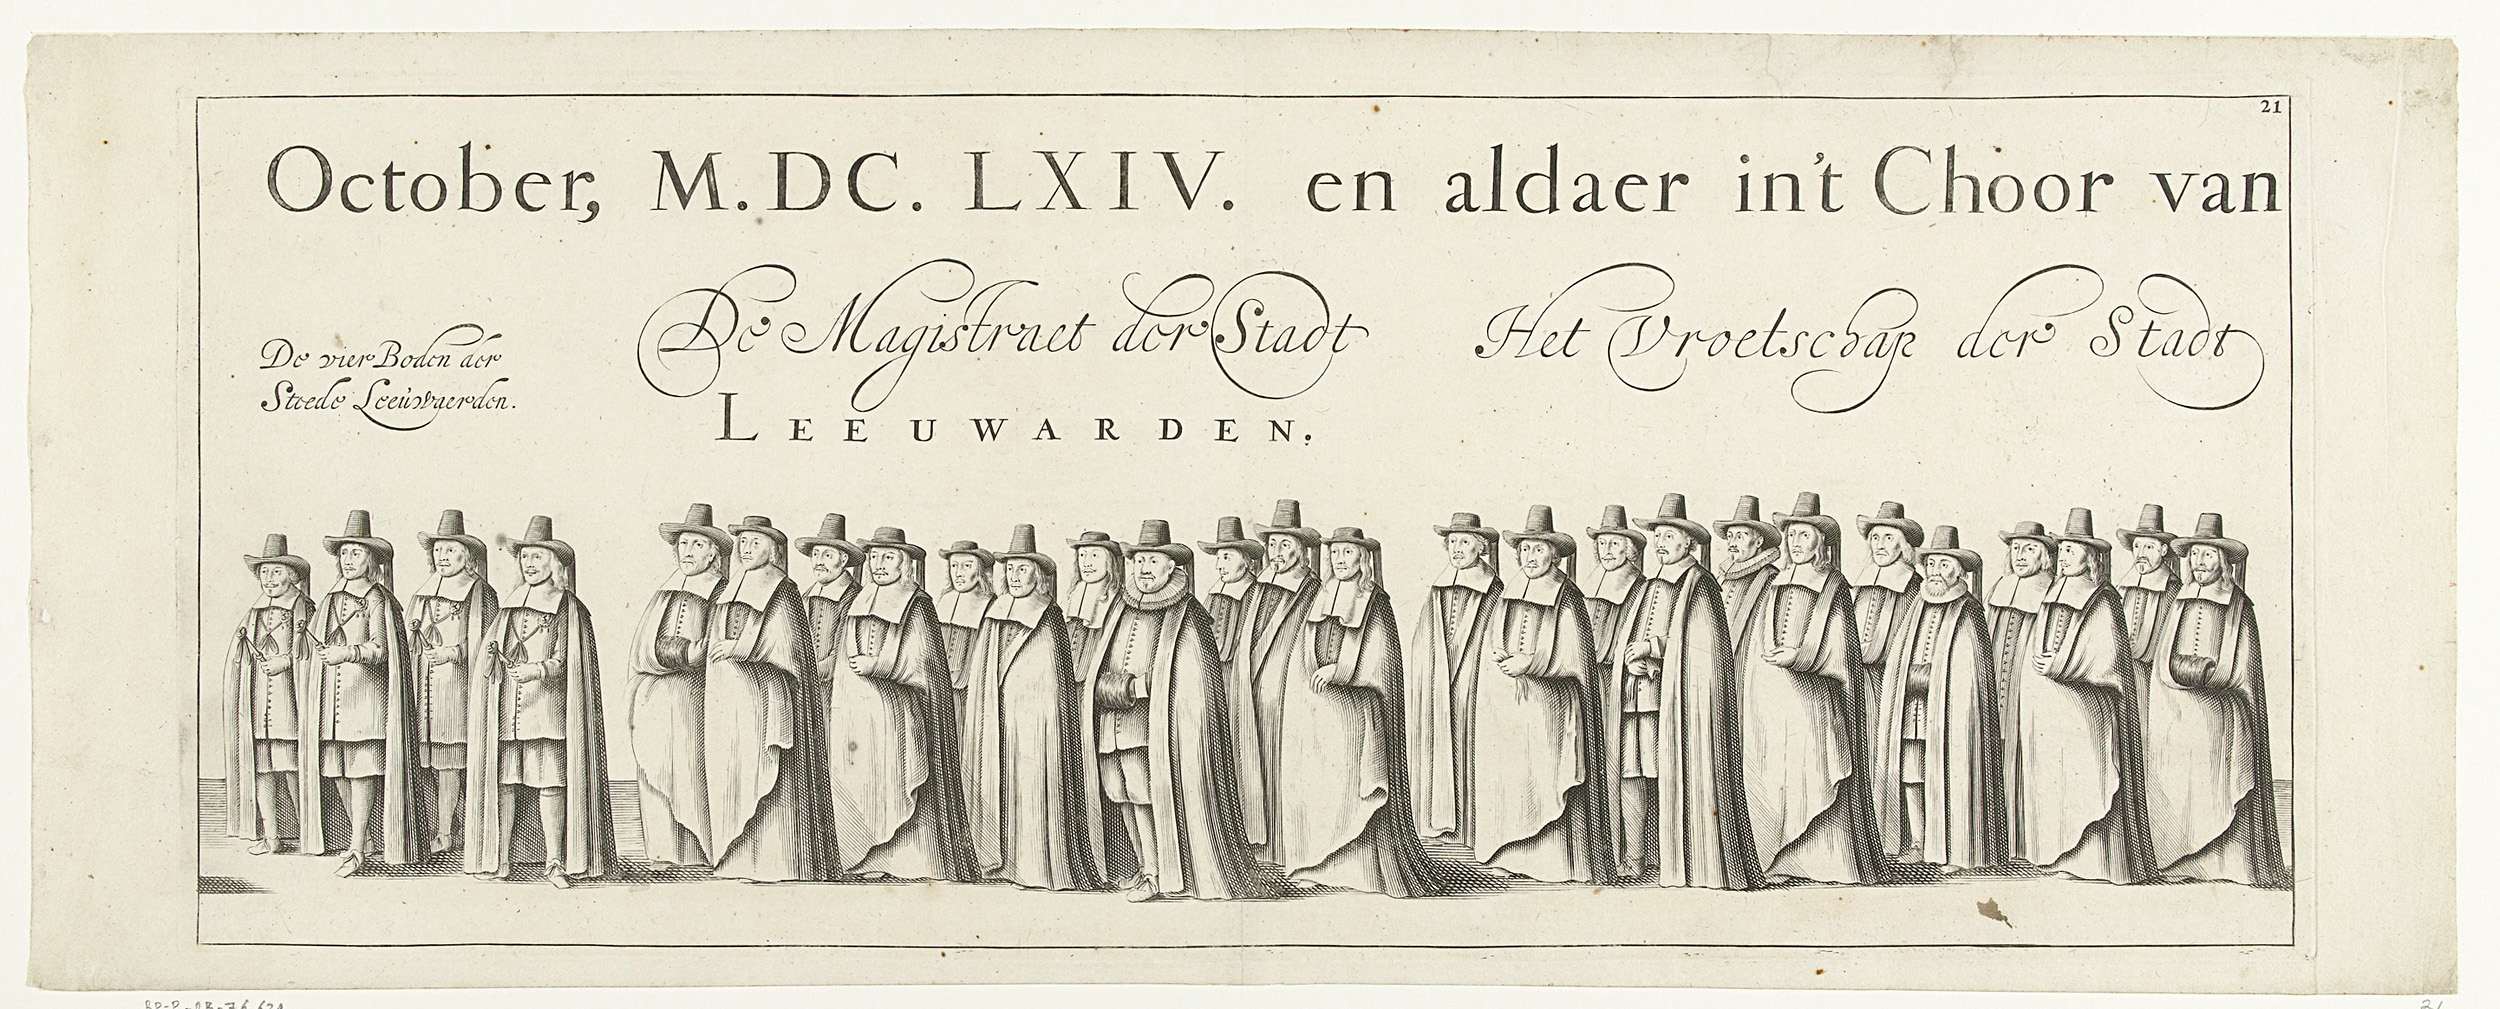 21
October, M.DC.LXIV. en aldaer in't Choor van
De vier Boden der
Steede Leeuwaerden.
De Magistraet der Stadt
LEEUWARDEN.
Het Vroetschap der Stadt
21